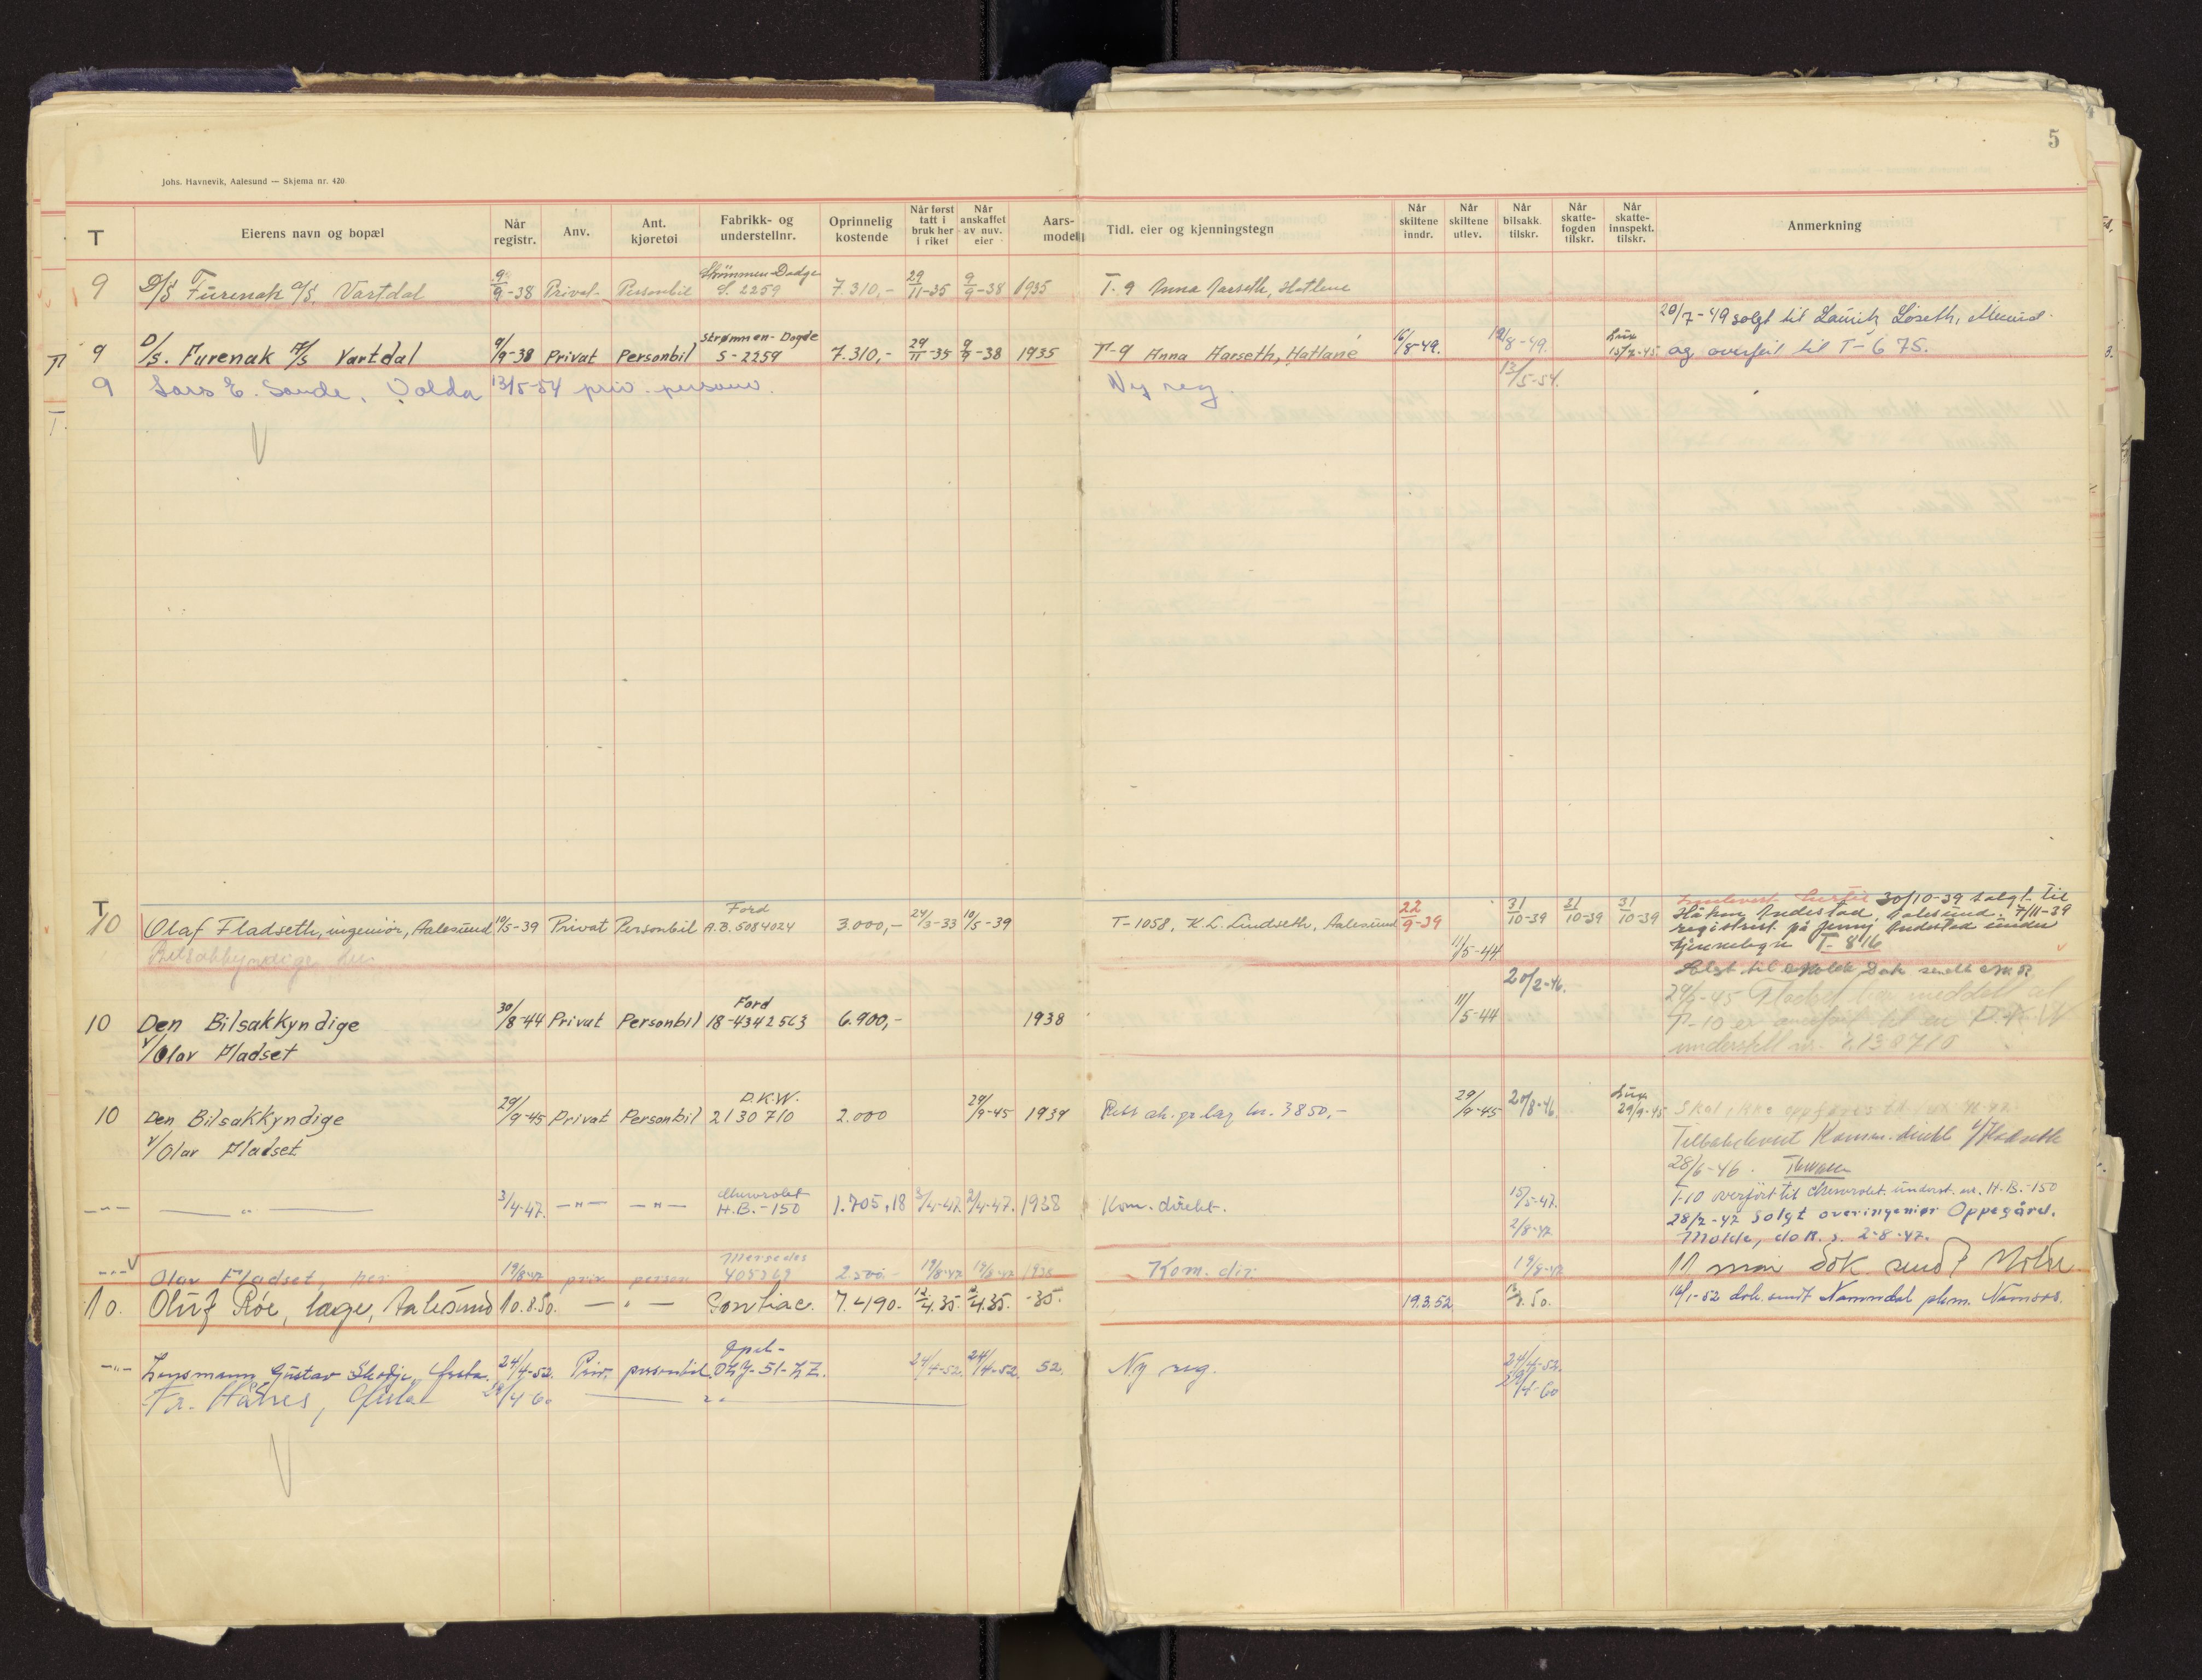 5
Johs. Havnevik, Aalesund — Skjema nr. 420
T
Eierens navn og bopæl
Når registr.
Anv.
Ant. kjøretøi
Fabrikk- og understellnr.
Oprinnelig kostende
Når først tatt i bruk her i riket
Når anskaffet av nuv. eier
Aars-modell
Tidl. eier og kjenningstegn
Når skiltene inndr.
Når skiltene utlev.
Når bilsakk. tilskr.
Når skatte-fogden tilskr.
Når skatte-innspekt. tilskr.
Anmerkning
9 D/S Furenak A/S. Vartdal 9/9-38 Privat Personbil Strömmen-Dodge S. 2259 7.310,- 29/11-35 9/9-38 1935 T. 9 Anna Aarseth, Hatlane
20/7-49 solgt til Lauritz Löseth,
9 D/s. Furenak A/s Vartdal 9/9-38 Privat Personbil Strømmen-Dogde S-2259 7.310,- 29/11-35 9/9-38 1935 T-9 Anna Aarseth, Hatlane 16/8-49. 19/8-49. Lux 15/9-45 og overført til T-675.
9 Lars E. Sande, Volda 13/5-54 priv. personv. Ny reg. 13/5-54.
T
10 Olaf Fladseth, ingeniör, Aalesund 10/5-39 Privat Personbil Ford A.B. 5084024 3.000,- 24/3-33 10/5-39 T-1058, K. L. Lindseth, Aalesund 22/9-39 31/10-39 31/10-39 31/10-39 30/10-39 solgt til
Håkon Andestad, Aalesund. 7/11-39
registrert på Jenny Andestad under
kjennetegn T-816
Bilsakkyndige den 11/5-44
Solgt til Molde Dok sendt
20/2-46.
10 Den Bilsakkyndige 30/8-44 Privat Personbil Ford 18-4342563 6.900,- 1938 11/5-44 29/9-45 Fladset har meddelt at
v/Olav Fladset T-10 er overført til en D.K.W
understell nr. 2130710
10 Den Bilsakkyndige 29/9-45 Privat Personbil D.K.W. 2130710 2.000 29/9-45 1939 kr. 3850,- 29/9-45 20/8-46 Lux 29/9-45 Skal ikke oppføres
v/Olav Fladset Tilbakelevert Komm. direkt v/Fladseth
28/6-46.
-"- -"- 3/4-47. -"- -"- Chevrolet H.B.-150 1.705,18 3/4-47 2/4-47. 1938 Kom. direkt. 15/5-47. T-10 overført til Chevrolet underst. nr. H-B.-150
2/8-47 28/7-47 Solgt overingeniør Oppegård.
Molde, dok. s. 2-8-47.
-"- Olav Fladset, her 19/8-47 priv. person Mersedes 405369 2.500.- 19/8-47 19/8-47 1938 Kom. dir. 19/8-47 dok. sendt Molde
10. Oluf Röe, læge, Aalesund 10.8.50. -"- Pontiac. 7.490.- 12/4.35. 12/4.35. -35. 19.3.52 8.50. 16/1-52 dok. sendt Namndal plkm. Namsos.
-"- Lensmann Gustav Skodje, Ørsta. 24/4-52. Priv. personbil. Opel- OZZ-51-ZZ. 24/4-52. 24/4-52. 52. Ny reg. 24/4-52.
Fr. Hånes, Ørsta 29/4-60 -"- 29/4-60